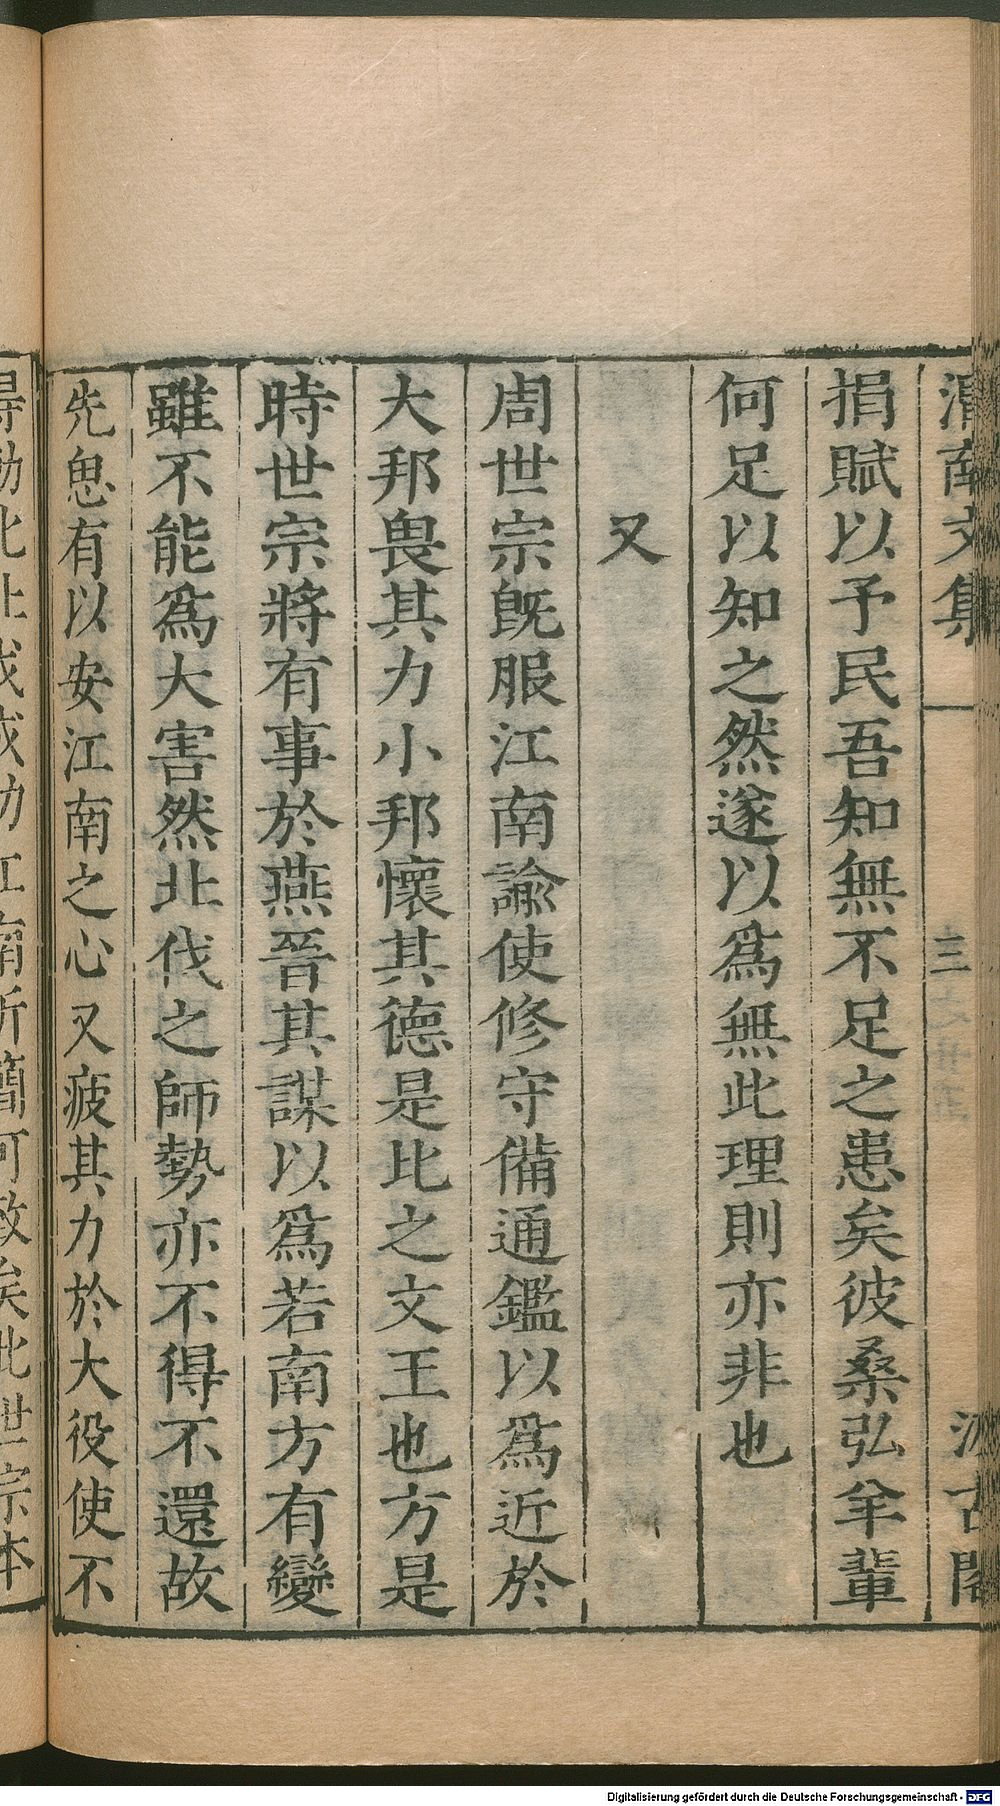 渭南文集 三 汲古閣
捐賦以予民吾知無不足之患矣彼桑弘羊輩
何足以知之然遂以爲無此理則亦非也
又
周世宗旣服江南諭使修守備通鑑以爲近於
大邦畏其力小邦懷其德是比之文王也方是
時世宗將有事於燕晉其謀以爲若南方有變
雖不能爲大害然北伐之師勢亦不得不還故
先思有以安江南之心又疲其力於大役使不
得動北上成功江南折簡可致矣此世宗本
Digitalisierung gefördert durch die Deutsche Forschungsgemeinschaft - DFG